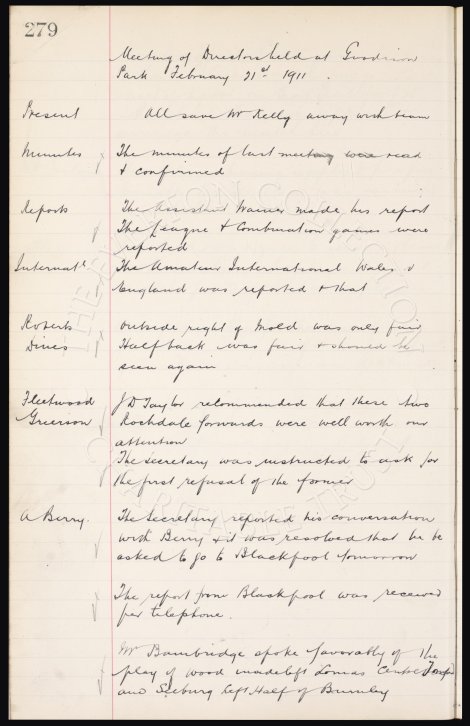 279
Meeting of Directors held at Goodison
Park February 21st 1911.
Present All save Mr Kelly away with team
Minutes The minutes of last meeting were read
& confirmed
Reports The Assistant Trainer made his report
The League & Combination games were
reported
Internatl The Amateur International Wales v
England was reported & that
Roberts outside right of Mold was only fair
Dines Half back was fair & should be
seen again
Fleetwood J D Taylor recommended that these two
Grierson Rochdale forwards were well worth our
attention
The Secretary was instructed to ask for
the first refusal of the former
A Berry. The Secretary reported his conversation
with Berry & it was resolved that he be
asked to go to Blackpool tomorrow
The report from Blackpool was received
per telephone.
Mr Bainbridge spoke favorably of the
play of Wood inside left Lomas Centre
and Seeburg left Half of Burnley
THE EVERTON COLLECTION
CHARITABLE TRUST